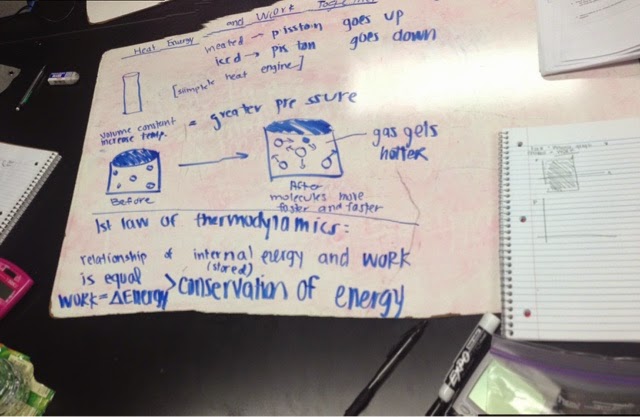 Heat Energy and Work Together
heated → pisstain goes up
iced → pis tan goes down
[simple heat engine]
volume constant
increase temp.
= greater pressure
gas gets
hotter
Before
After
molecules move
faster and faster
1st law of thermodynamics:
relationship of internal energy and work
(stored)
is equal
work = ΔEnergy > conservation of energy
EXPO